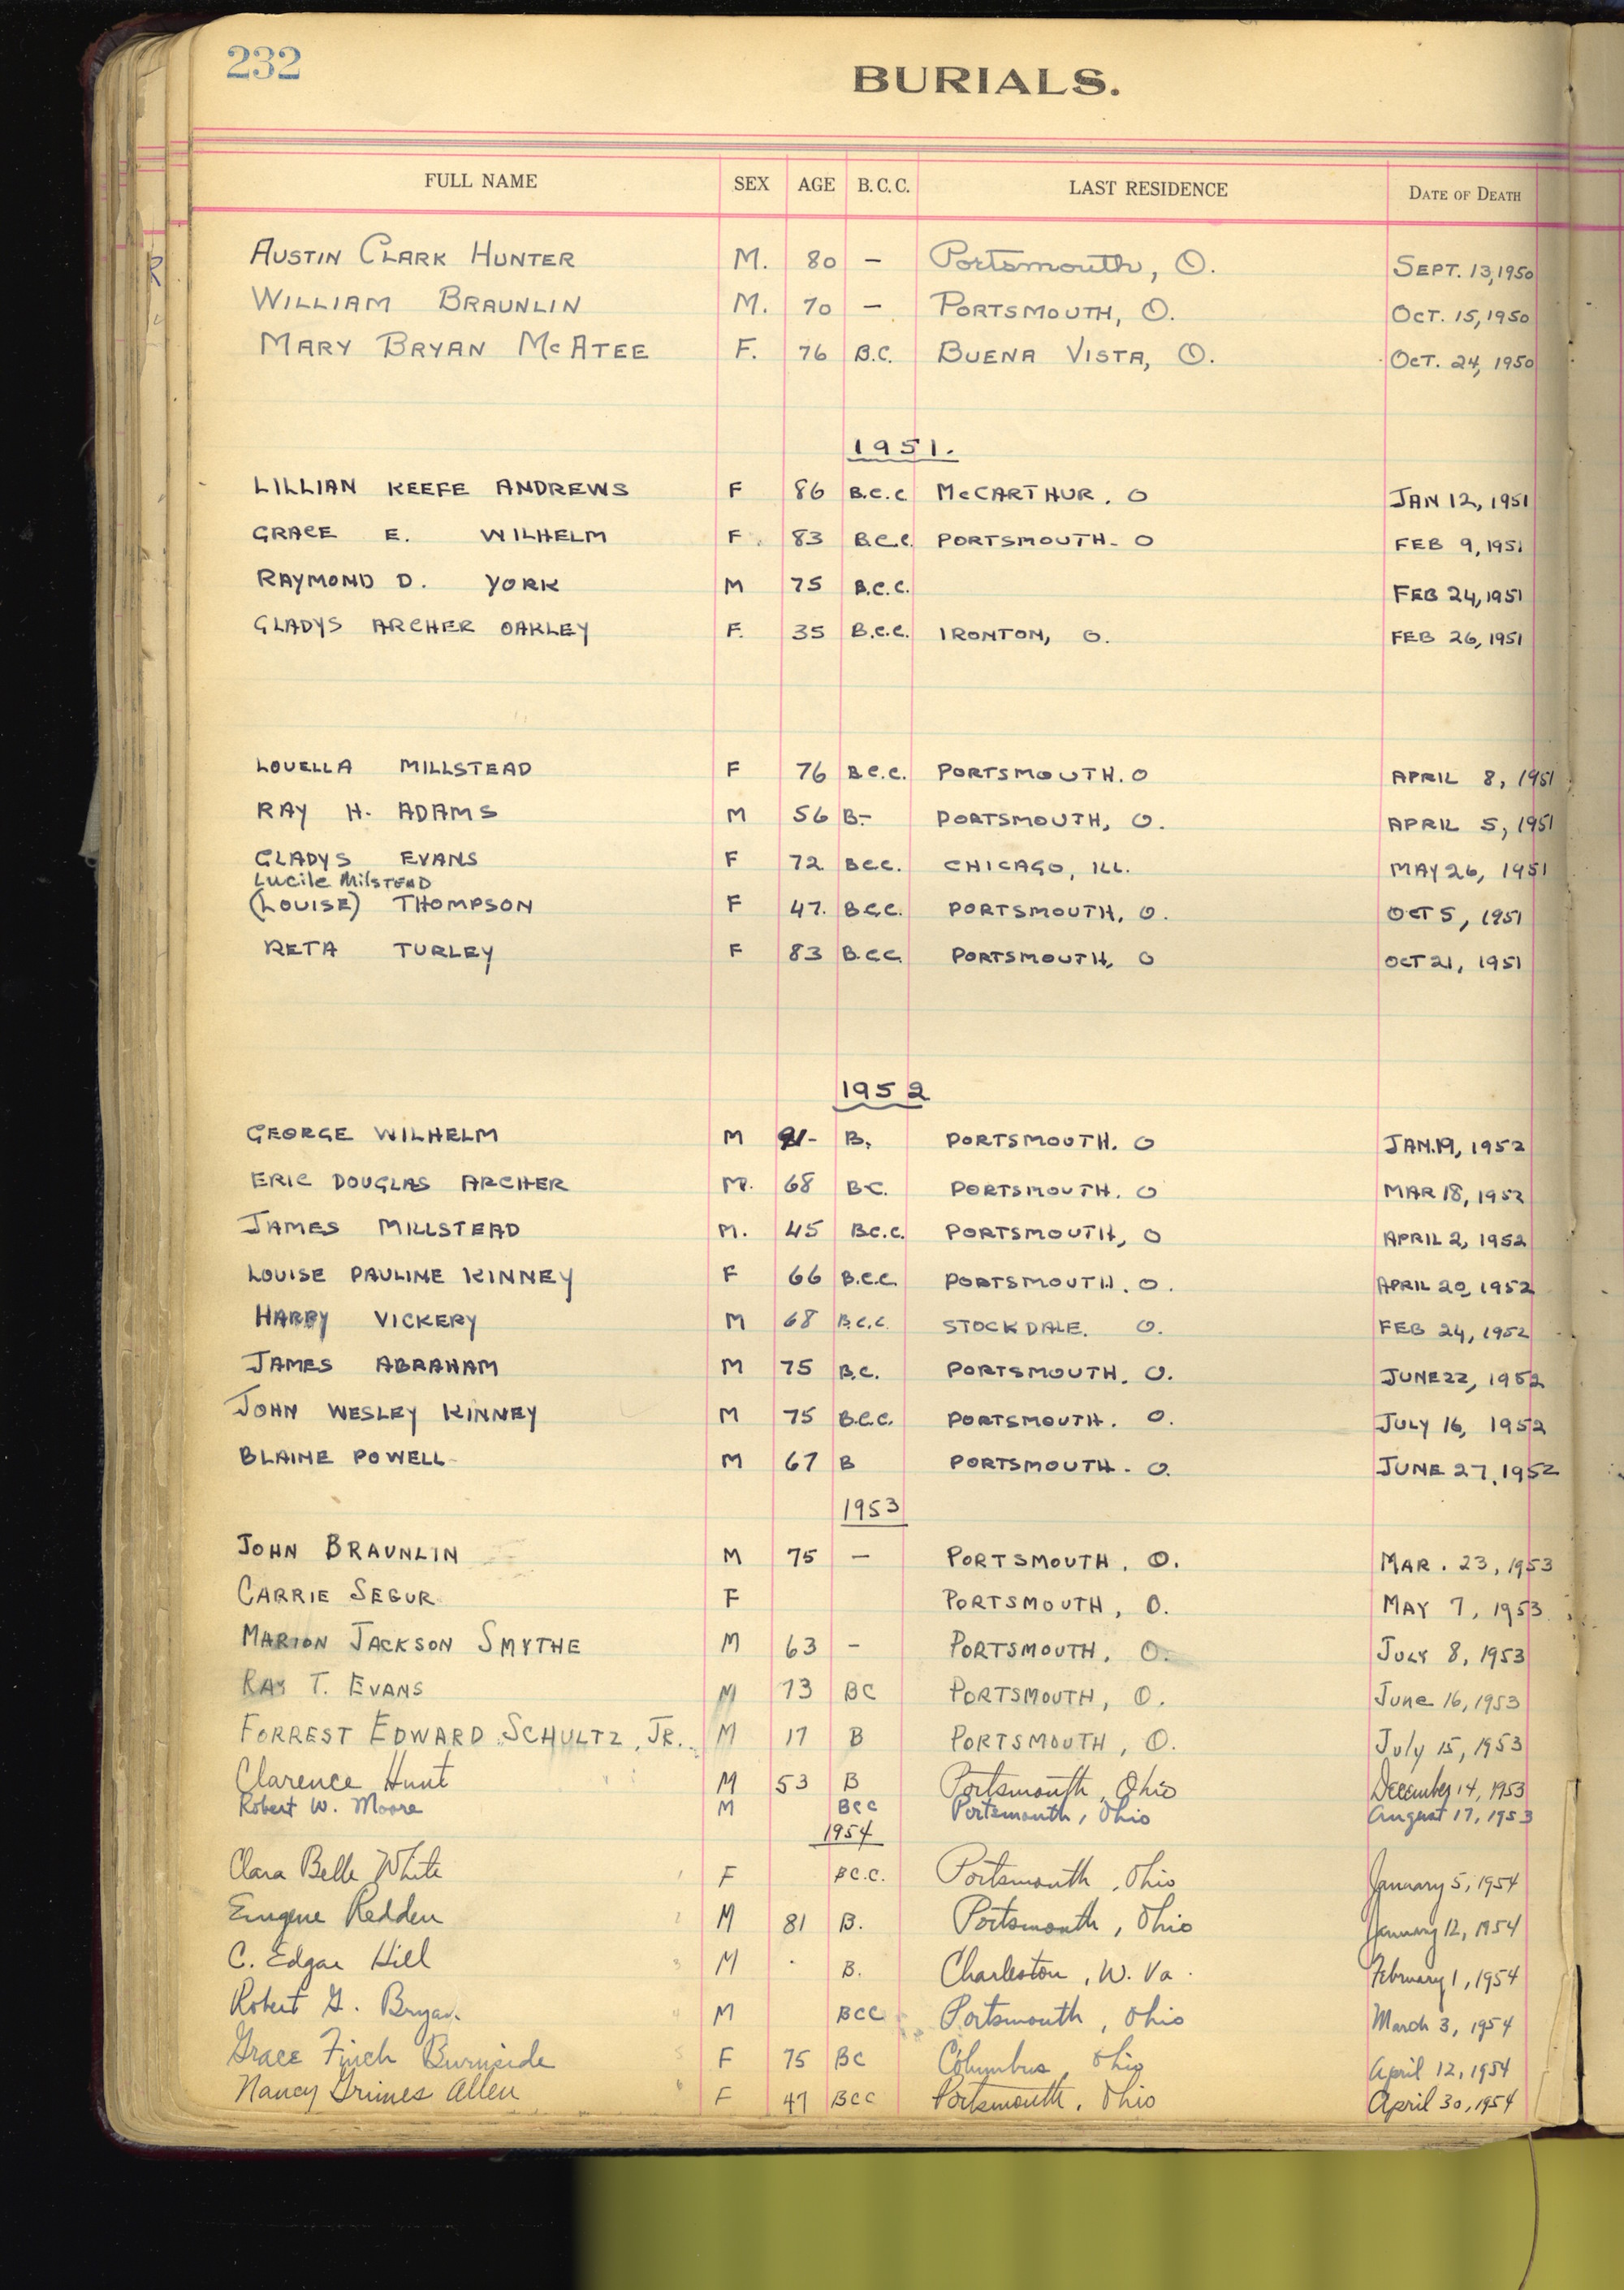 232
BURIALS.
FULL NAME SEX AGE B.C.C. LAST RESIDENCE DATE OF DEATH
AUSTIN CLARK HUNTER M. 80 – Portsmouth, O. SEPT. 13, 1950
WILLIAM BRAUNLIN M. 70 – PORTSMOUTH, O. OCT. 15, 1950
MARY BRYAN McATEE F. 76 B.C. BUENA VISTA, O. OCT. 24, 1950
1951.
LILLIAN KEEFE ANDREWS F 86 B.C.C McCARTHUR. O JAN 12, 1951
GRACE E. WILHELM F. 83 B.C.C. PORTSMOUTH. O FEB 9, 1951
RAYMOND D. YORK M 75 B.C.C. FEB 24, 1951
GLADYS ARCHER OAKLEY F. 35 B.C.C. IRONTON, O. FEB 26, 1951
LOUELLA MILLSTEAD F 76 B.C.C. PORTSMOUTH. O APRIL 8, 1951
RAY H. ADAMS M 56 B- PORTSMOUTH, O. APRIL 5, 1951
GLADYS EVANS F 72 BCC. CHICAGO, ILL. MAY 26, 1951
Lucile MilSTEAD
(LOUISE) THOMPSON F 47. B.C.C. PORTSMOUTH, O. OCT 5, 1951
RETA TURLEY F 83 B.C.C. PORTSMOUTH, O OCT 21, 1951
1952
GEORGE WILHELM M 91- B. PORTSMOUTH. O JAN.19, 1952
ERIC DOUGLAS ARCHER M. 68 B.C. PORTSMOUTH. O MAR 18, 1952
JAMES MILLSTEAD M. 45 B.C.C. PORTSMOUTH, O APRIL 2, 1952
LOUISE PAULINE KINNEY F 66 B.C.C. PORTSMOUTH. O. APRIL 20, 1952
HARRY VICKERY M 68 B.C.C. STOCKDALE. O. FEB 24, 1952
JAMES ABRAHAM M 75 B.C. PORTSMOUTH. O. JUNE 22, 1952
JOHN WESLEY KINNEY M 75 B.C.C. PORTSMOUTH. O. JULY 16, 1952
BLAINE POWELL M 67 B PORTSMOUTH. O. JUNE 27, 1952
1953
JOHN BRAUNLIN M 75 – PORTSMOUTH. O. MAR. 23, 1953
CARRIE SEGUR F PORTSMOUTH, O. MAY 7, 1953
MARION JACKSON SMYTHE M 63 – PORTSMOUTH, O. JULY 8, 1953
RAY T. EVANS M 73 BC PORTSMOUTH, O. June 16, 1953
FORREST EDWARD SCHULTZ, JR. M 17 B PORTSMOUTH, O. July 15, 1953
Clarence Hunt M 53 B Portsmouth, Ohio December 14, 1953
Robert W. Moore M BCC Portsmouth, Ohio August 17, 1953
1954
Clara Belle White 1 F BC.C. Portsmouth, Ohio January 5, 1954
Eugene Redden 2 M 81 B. Portsmouth, Ohio January 12, 1954
C. Edgar Hill 3 M B. Charleston, W. Va. February 1, 1954
Robert G. Bryan. 4 M BCC Portsmouth, Ohio March 3, 1954
Grace Finch Burnside 5 F 75 BC Columbus, Ohio April 12, 1954
Nancy Grimes Allen 6 F 47 BCC Portsmouth, Ohio April 30, 1954